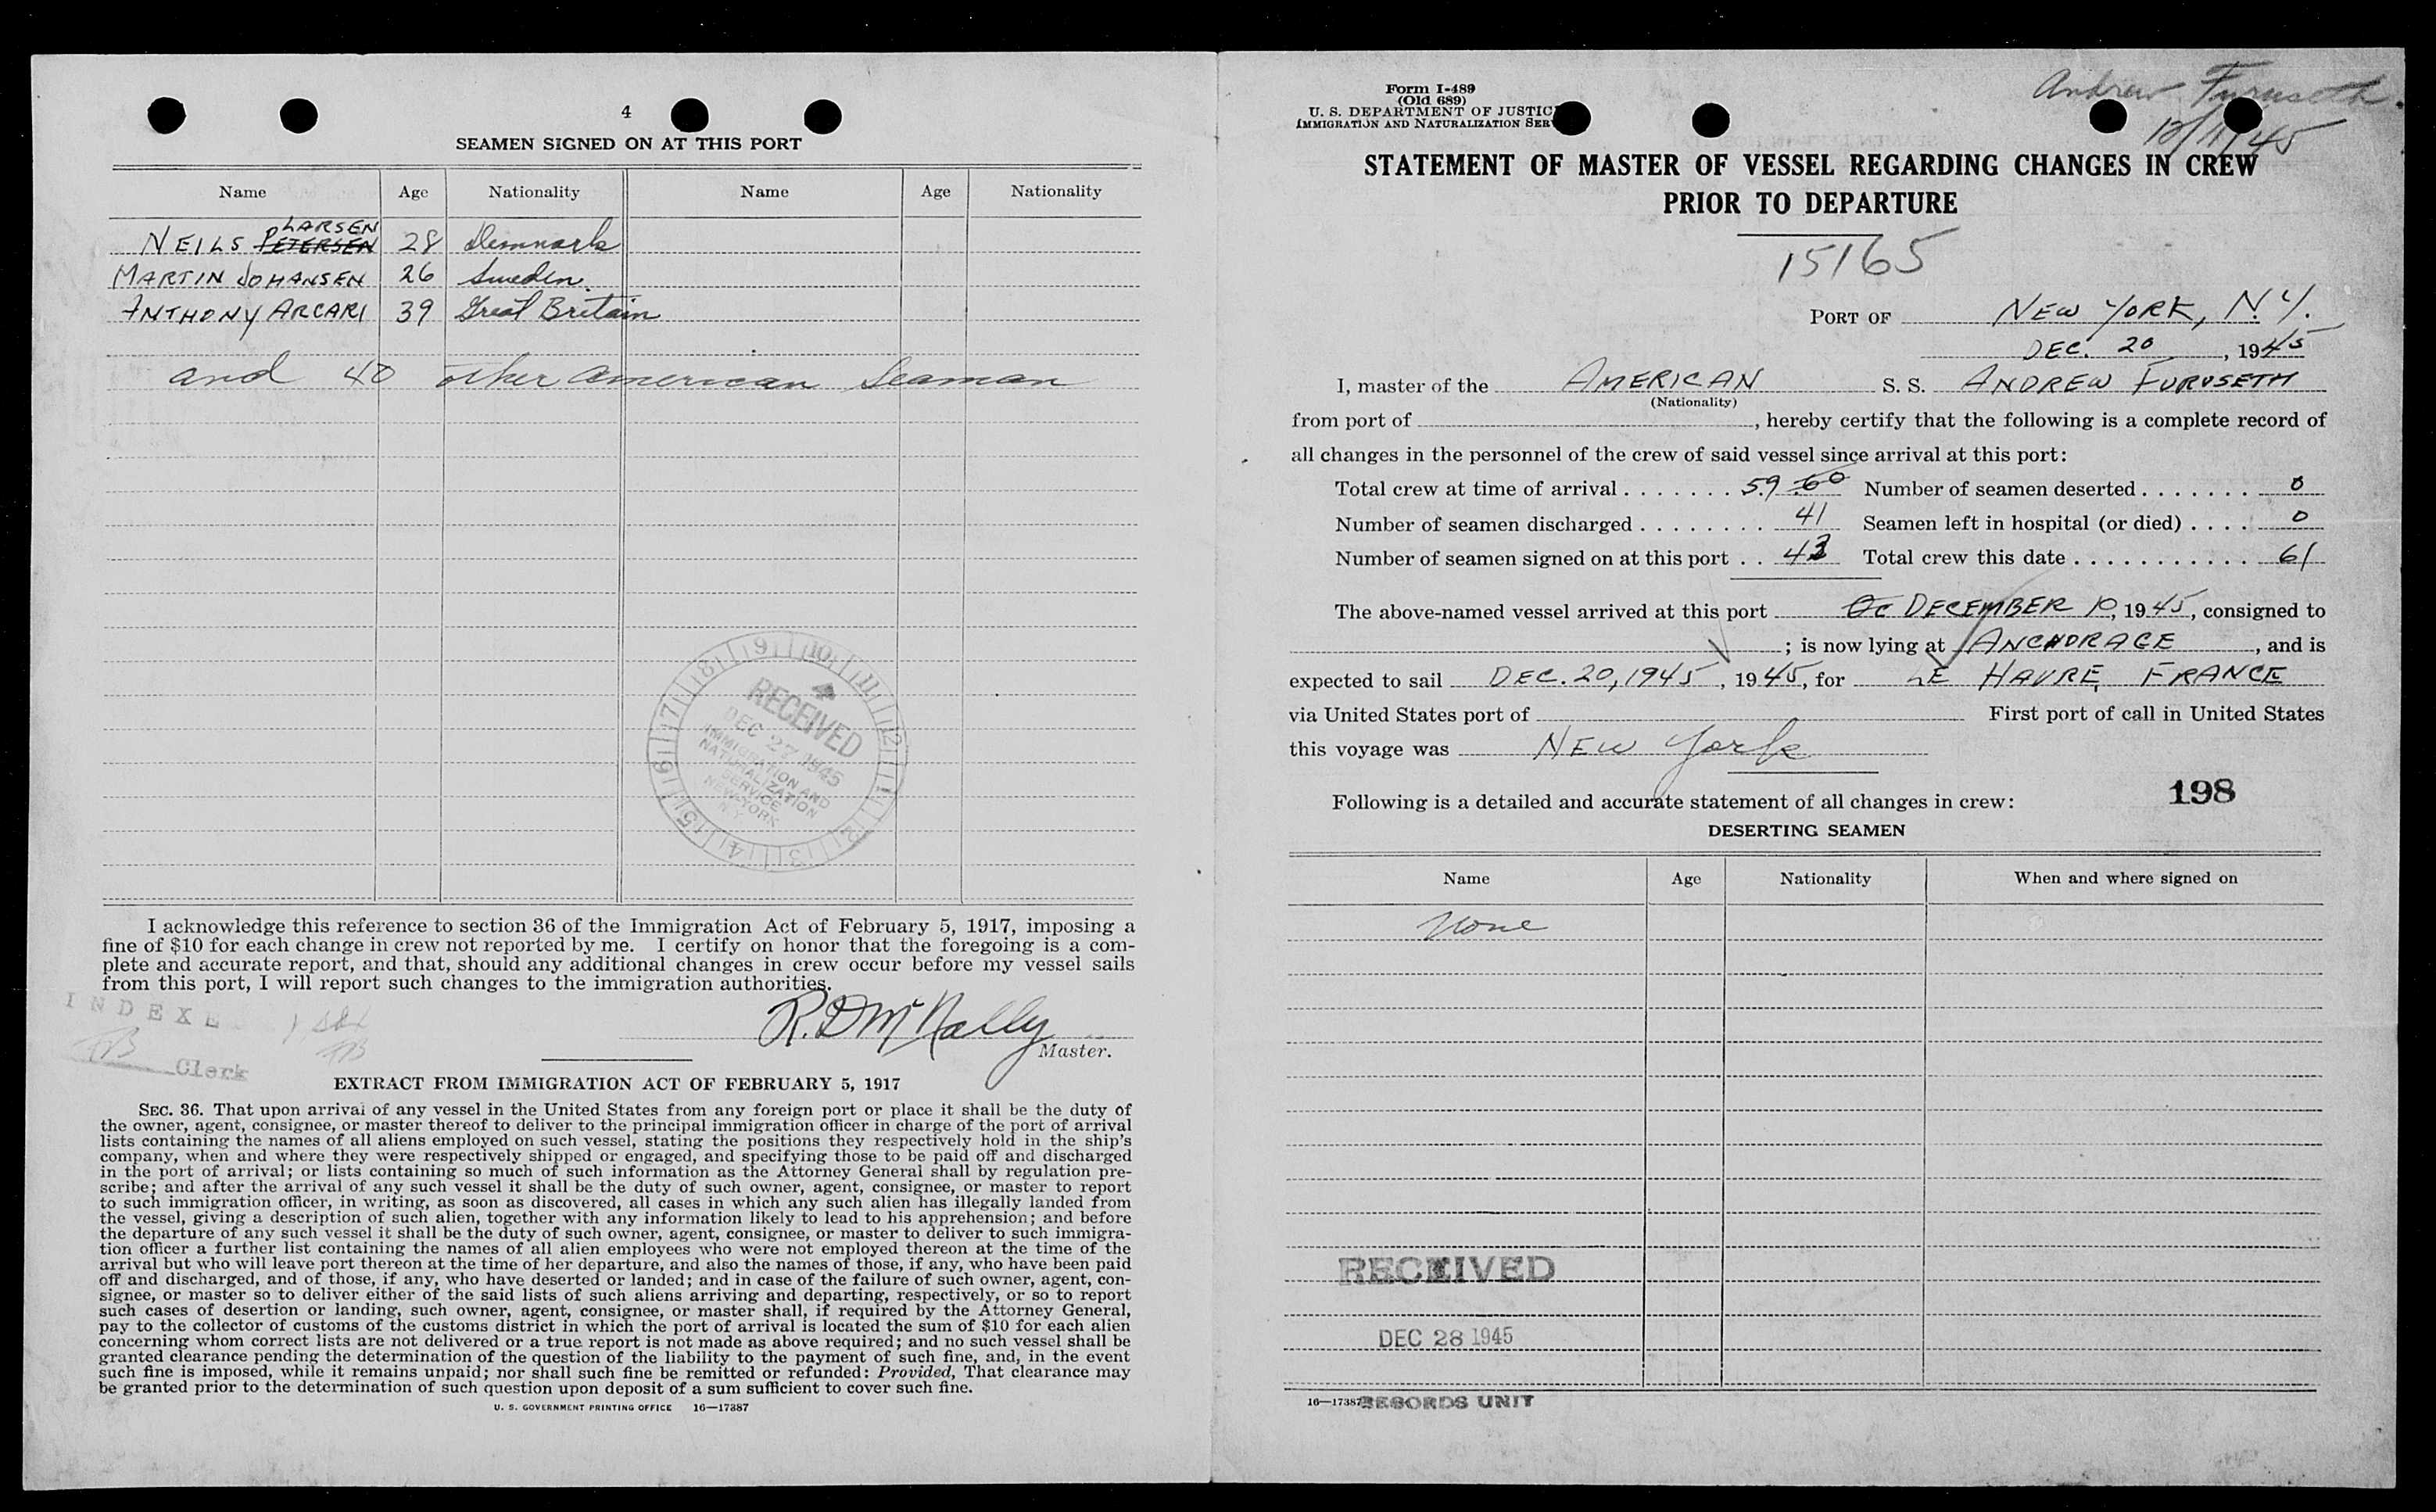 4
SEAMEN SIGNED ON AT THIS PORT
Name Age Nationality Name Age Nationality
LARSEN
NEILS PETERSEN 28 Denmark
MARTIN JOHANSEN 26 Sweden.
ANTHONY ARCARI 39 Great Britain
and 40 other American Seaman
RECEIVED
DEC 27 1945
IMMIGRATION AND
NATURALIZATION
SERVICE
NEW YORK
N Y
I acknowledge this reference to section 36 of the Immigration Act of February 5, 1917, imposing a
fine of $10 for each change in crew not reported by me. I certify on honor that the foregoing is a com-
plete and accurate report, and that, should any additional changes in crew occur before my vessel sails
from this port, I will report such changes to the immigration authorities.
INDEXE
R. D McNally
Master.
Clerk
EXTRACT FROM IMMIGRATION ACT OF FEBRUARY 5, 1917
SEC. 36. That upon arrival of any vessel in the United States from any foreign port or place it shall be the duty of
the owner, agent, consignee, or master thereof to deliver to the principal immigration officer in charge of the port of arrival
lists containing the names of all aliens employed on such vessel, stating the positions they respectively hold in the ship's
company, when and where they were respectively shipped or engaged, and specifying those to be paid off and discharged
in the port of arrival; or lists containing so much of such information as the Attorney General shall by regulation pre-
scribe; and after the arrival of any such vessel it shall be the duty of such owner, agent, consignee, or master to report
to such immigration officer, in writing, as soon as discovered, all cases in which any such alien has illegally landed from
the vessel, giving a description of such alien, together with any information likely to lead to his apprehension; and before
the departure of any such vessel it shall be the duty of such owner, agent, consignee, or master to deliver to such immigra-
tion officer a further list containing the names of all alien employees who were not employed thereon at the time of the
arrival but who will leave port thereon at the time of her departure, and also the names of those, if any, who have been paid
off and discharged, and of those, if any, who have deserted or landed; and in case of the failure of such owner, agent, con-
signee, or master so to deliver either of the said lists of such aliens arriving and departing, respectively, or so to report
such cases of desertion or landing, such owner, agent, consignee, or master shall, if required by the Attorney General,
pay to the collector of customs of the customs district in which the port of arrival is located the sum of $10 for each alien
concerning whom correct lists are not delivered or a true report is not made as above required; and no such vessel shall be
granted clearance pending the determination of the question of the liability to the payment of such fine, and, in the event
such fine is imposed, while it remains unpaid; nor shall such fine be remitted or refunded: Provided, That clearance may
be granted prior to the determination of such question upon deposit of a sum sufficient to cover such fine.
U. S. GOVERNMENT PRINTING OFFICE 16—17387
Form I-489
(Old 689)
U. S. DEPARTMENT OF JUSTIC
IMMIGRATION AND NATURALIZATION SER
Andrew Furuseth.
12/11/45
STATEMENT OF MASTER OF VESSEL REGARDING CHANGES IN CREW
PRIOR TO DEPARTURE
15165
PORT OF NEW YORK, N.Y.
DEC. 20, 1945
I, master of the AMERICAN S. S. ANDREW FURUSETH
(Nationality)
from port of , hereby certify that the following is a complete record of
all changes in the personnel of the crew of said vessel since arrival at this port:
Total crew at time of arrival . . . . . . . 59 60 Number of seamen deserted . . . . . . . 0
Number of seamen discharged . . . . . . . . 41 Seamen left in hospital (or died) . . . . 0
Number of seamen signed on at this port . . 43 Total crew this date . . . . . . . . . . . 61
The above-named vessel arrived at this port Oc DECEMBER 10, 1945, consigned to
; is now lying at ANCHORAGE, and is
expected to sail DEC. 20, 1945, 1945, for LE HAVRE, FRANCE
via United States port of First port of call in United States
this voyage was NEW York
198
Following is a detailed and accurate statement of all changes in crew:
DESERTING SEAMEN
Name Age Nationality When and where signed on
None
RECEIVED
DEC 28 1945
16—17387 RECORDS UNIT